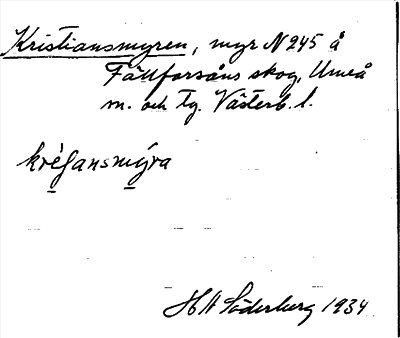 Kristiansmyren, myr N 245 å
Fällforsåns skog, Umeå
m. och tg. Västerb. l.
krèʃansmýra
H A Söderberg 1934